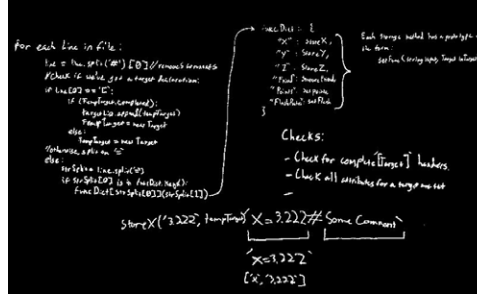 for each line in file:
line = line.split('#')[0] //removes comments
//check if we've got a target declaration:
if line[0] == '[':
if (TempTarget.completed):
targetList.append(tempTarget)
TempTarget = new Target
else:
tempTarget = new Target
//otherwise, split on '='
else:
strSplit = line.split('=')
if strSplit[0] is in funcDict.keys():
funcDict[strSplit[0]](strSplit[1])
funcDict: {
"X" : storeX,
"Y" : storeY,
"Z" : storeZ,
"Friend" :
"Points" : setpoints
"FlashRate" : setFlash
}
Each storage method has a prototype of
the form:
Checks:
- Check for complete '[Target]' headers.
- Check all attributes for a target are set
-
storeX('3.222', tempTarget) 'X=3.222#Some Comment'
'X=3.222'
['X', '3.222']